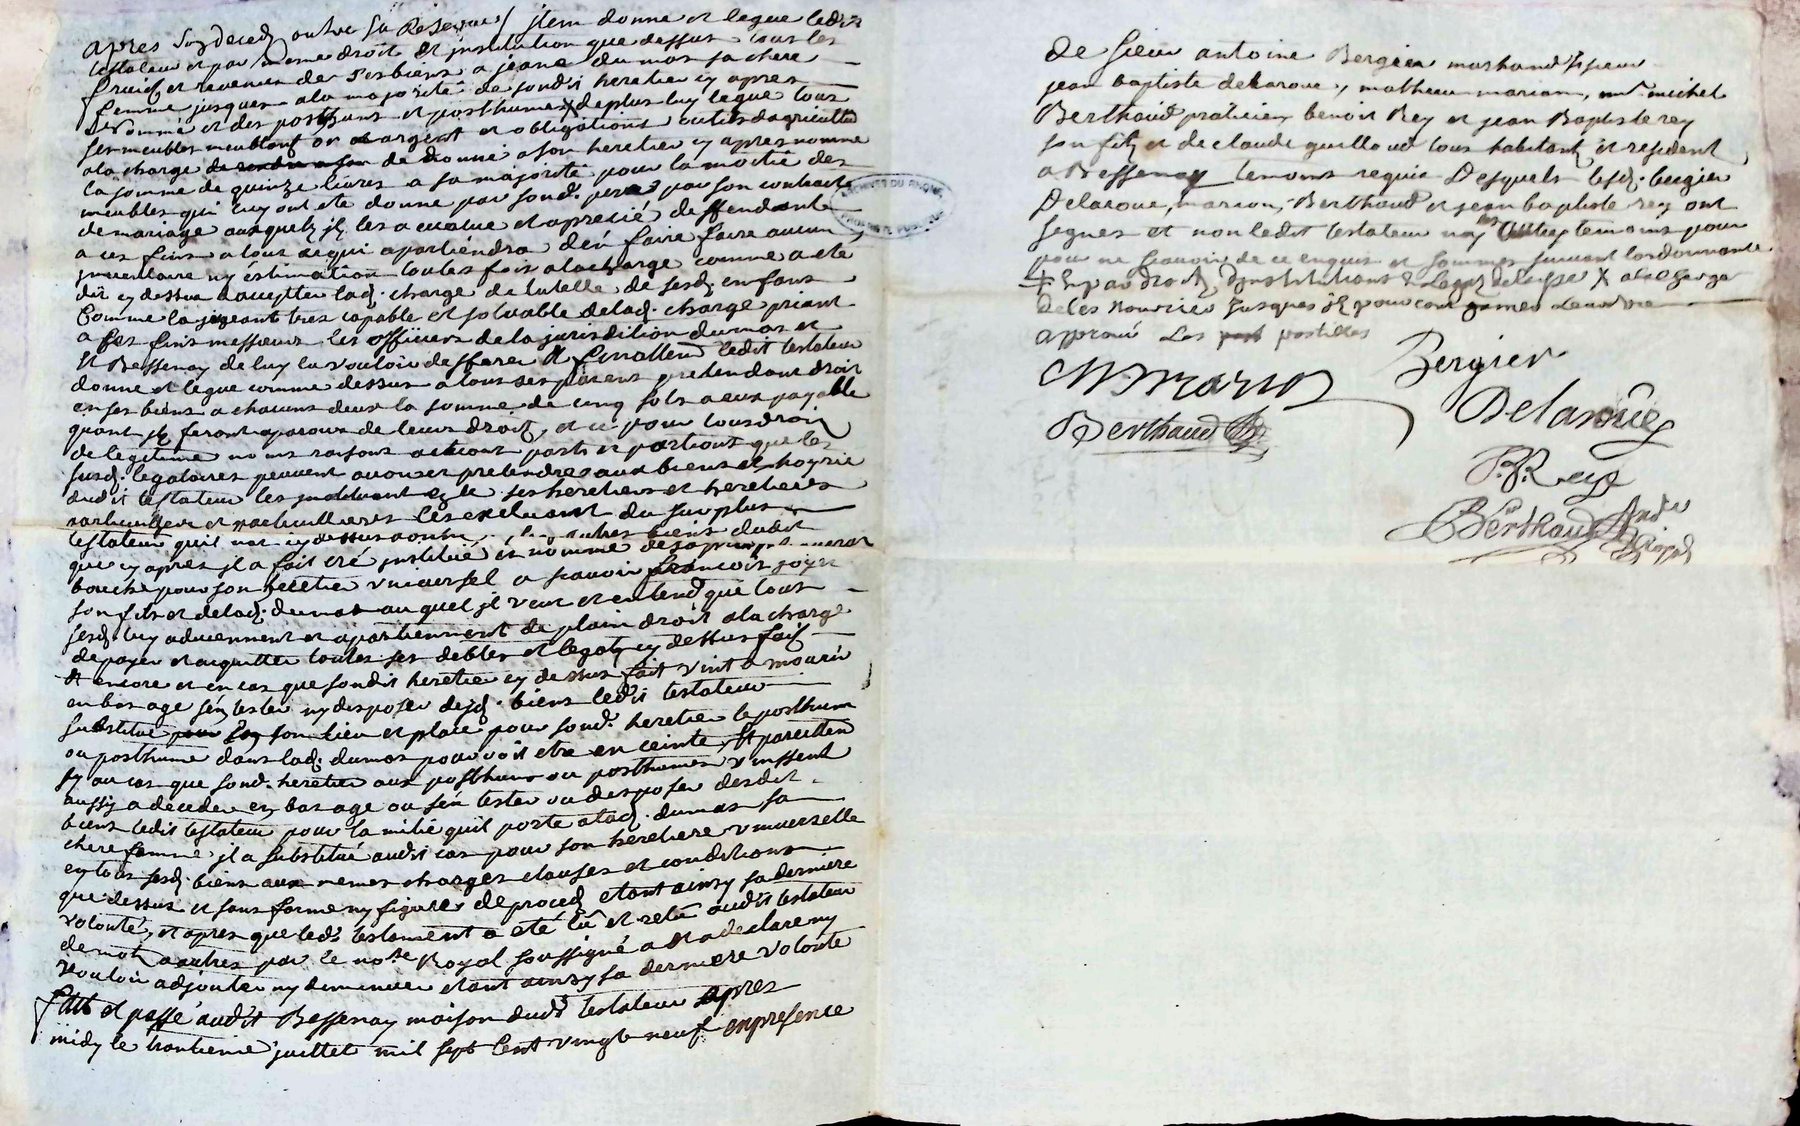 apres son deced outre sa Reserve / jtem donne et legue ledit
testateur et par mesme droit et jnstitution que dessus tous les
fruicts et revenus de ses biens a jeane dumas sa chere
femme jusques ala majorité de sondit heretier cy apres
nommé et des posthums et posthumes X de plus luy legue tous
ses meubles meublant or argent et obligations outils dagriculture
ala charge de donné a son heretier cy apres nomme
la somme de quinze livres a sa majorite pour la moitie des
meubles qui luy ont ete donne par sond. pere par son contract
de mariage ausquels jl les a evalue et apretié deffendant
a ces fins a tous a qui apartiendra d'en faire faire aucun
jnventaire ny estimation toutes fois ala charge comme a ete
dit cy dessus daccepter lad. charge de tutelle de sesd. enfans
comme la jugeant tres capable et solvable de lad. charge priant
a ses fins messieurs les officiers de la jurisdition dumas et
et Bessenay de luy la vouloir defferer Et finallem ledit testateur
donne et legue comme dessus a tous ses parens pretendant droit
en ses biens a chacuns deux la somme de cinq sols a eux payable
quant jls feront aparoir de leurs droits, et ce pour tous droits
de legitime noms raisons actions parts et portions que les
susd. legataires peuvent avoir et pretendre aux biens et hoyrie
dudit testateur les jnstituant en ce ses heretiers et heretieres
particulliers et particullieres les excluant du surplus
testateur quil nat cy dessus autres biens dudit
que cy apres jl a fait cré jnstitué et nomme de sa propre
bouche pour son heretier vniversel a scavoir francois
son fils et de lad. dumas au quel jl veut et entend que tous
sesd. luy adviennent et apartiennent de plain droit ala charge
de payer et acquitter toutes ses debtes et legats cy dessus fait
Et encore et en cas que sondit heretier cy dessus fait vint a mourir
en bas age sen tester ny disposer desd. biens ledit testateur
substitue pour son lieu et place pour sond. heretier le posthum
ou posthume dont lad. dumas pourroit etre en ceinte, Et pareillem
sy au cas que sond. heretier aux posthums ou posthumes vinssent
aussy a deceder en bas age ou sen tester ou disposer desdit
biens ledit testateur pour lamitié quil porte a lad. dumas sa
chere femme jl a substitué audit cas pour son heretiere vniverselle
en tous sesd. biens aux memes charges clauses et conditions
que dessus et sans forme ny figures de proced etant ainsy sa derniere
volonté, et apres que led. testament a eté lû et relû audit testateur
de mots a autres par le no.re Royal soussigné a et a declare ny
vouloir adjouter ny diminuer etant ainsy sa derniere volonte
fait et passé audit Bessenay maison dud. testateur apres
midy le trantieme juillet mil sept cent vingt neuf en presence
de sieur antoine Bergier marchand sieur
jean baptiste delaroue, mathieu marion, michel
Berthaud praticien benoit Rey et jean Baptiste rey
son fils et de claude guilloud tous habitants et resident
a Bessenay temoins requis Desquels lesd. bergier
Delaroue, marion, Berthaud et jean baptiste rey ont
signes et non ledit testateur ny les autres temoins pour
pour ne scavoir de ce enquis et sommes suivant lordonnance
X ala charge
de les nourrir jusques
approuvé les postilles
M marion
Bergier
Delaroüe
Berthaud
J.B. Rey
Berthaud